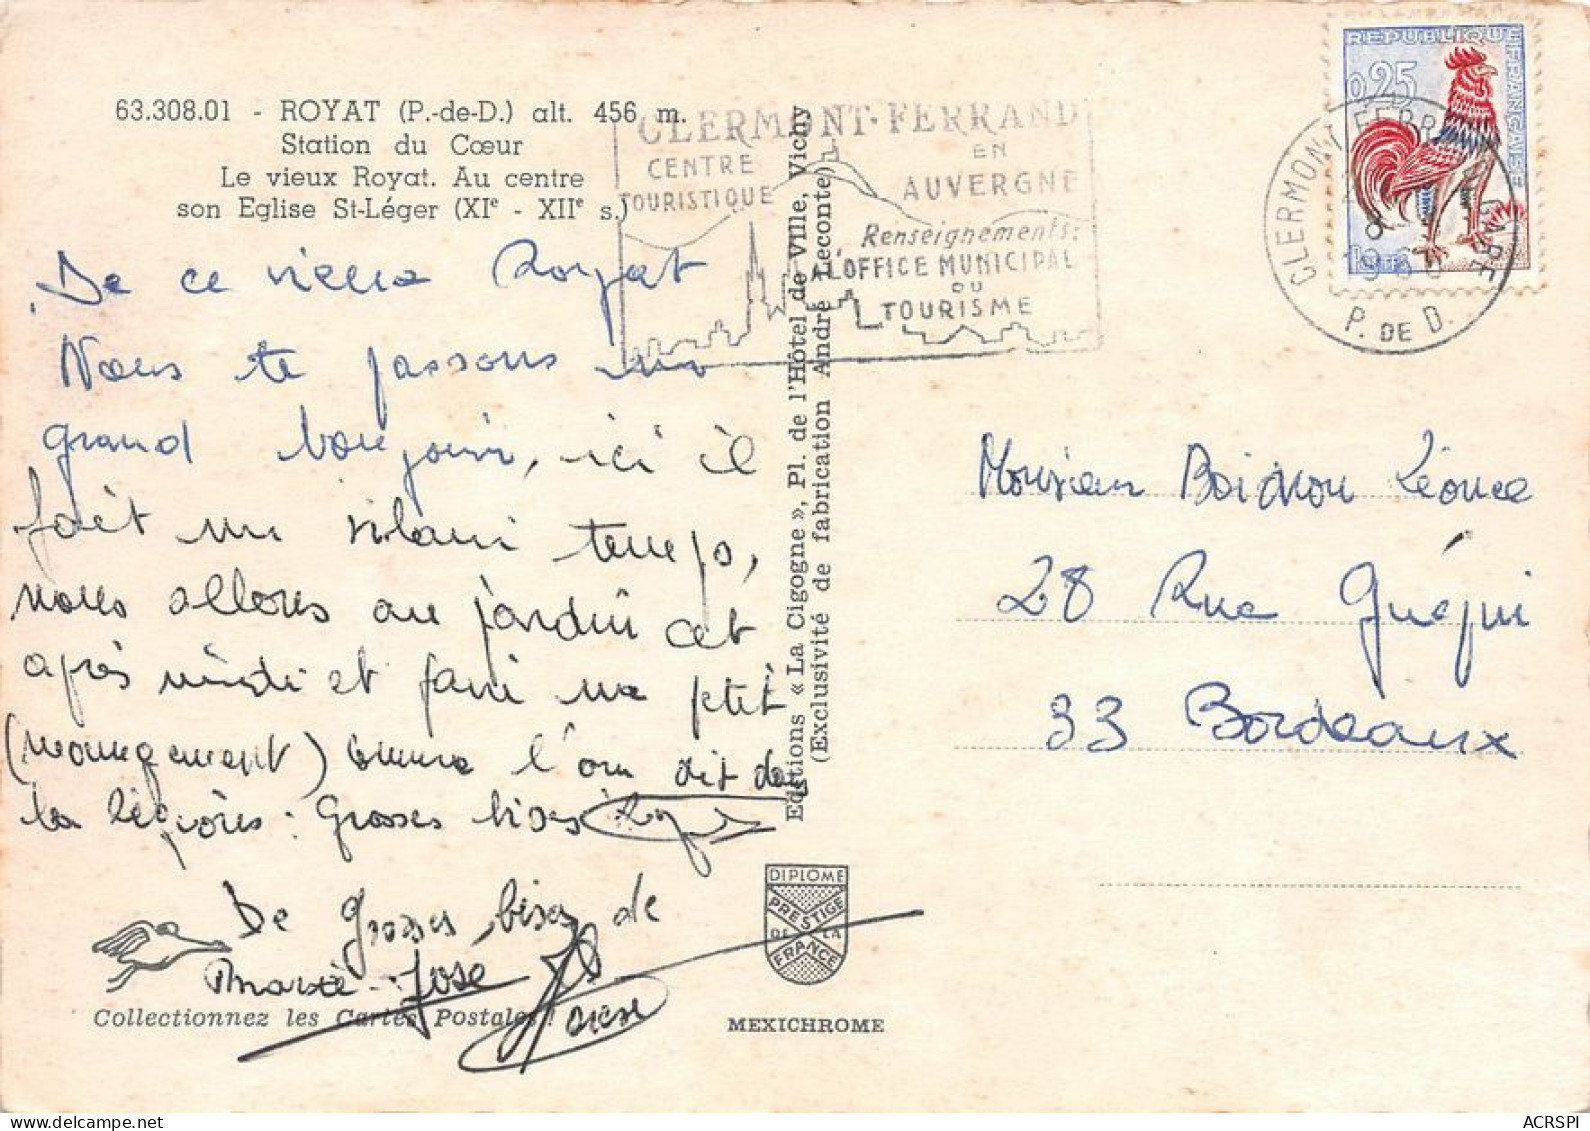 63.308.01 - ROYAT (P.-de-D.) alt. 456 m.
Station du Cœur
Le vieux Royat. Au centre
son Eglise St-Léger (XIe - XIIe s.)
CLERMONT-FERRAND
CENTRE
TOURISTIQUE
EN
AUVERGNE
Renseignements:
L'OFFICE MUNICIPAL
DU
TOURISME
REPUBLIQUE FRANÇAISE
0,25
CLERMONT FERRAND GARE
P. DE D.
De ce vieux Royat
Nous te passons un
grand bonjour, ici il
fait un vilain temps,
nous allons au jardin cet
après midi et faire un ptit
(mangement) comme l'on dit dans
la : Grosses bises
De Grosses bises de
José
Editions « La Cigogne », Pl. de l'Hôtel de Ville, Vichy
(Exclusivité de fabrication André Leconte)
Monsieur Boidron Léonce
28 Rue
33 Bordeaux
DIPLOME
PRESTIGE
DE LA
FRANCE
Collectionnez les Cartes Postales !
MEXICHROME
ACRSPI